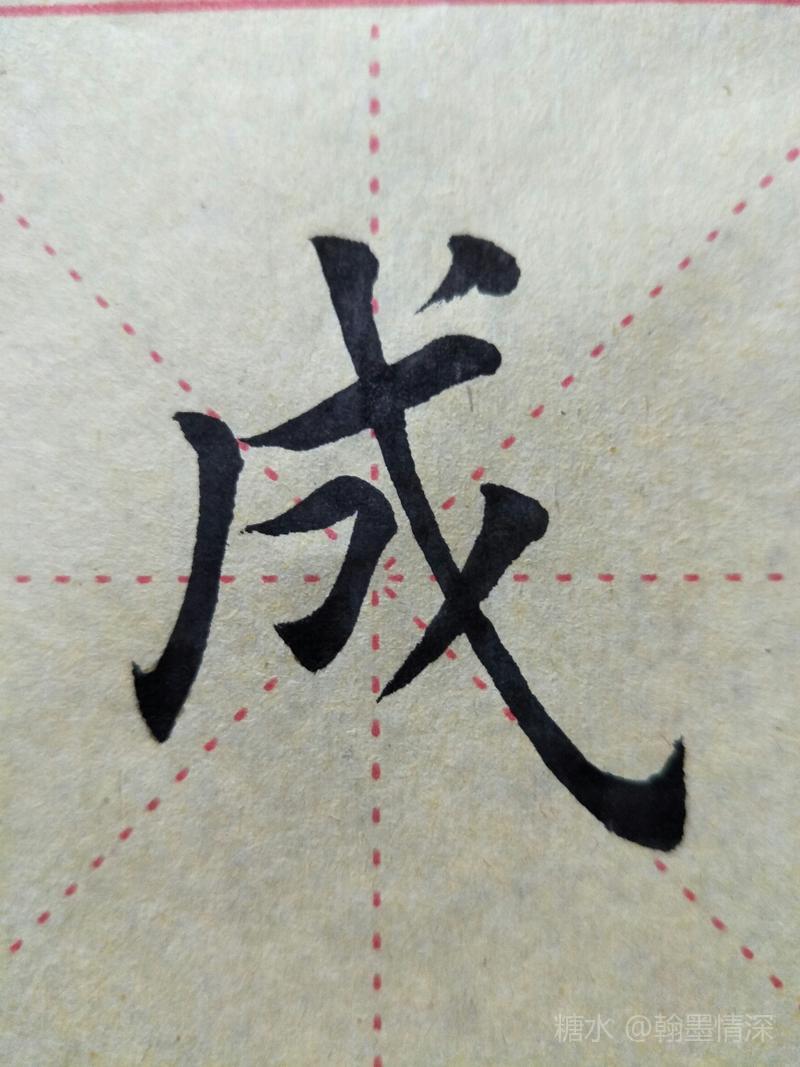 成
糖水 @翰墨情深